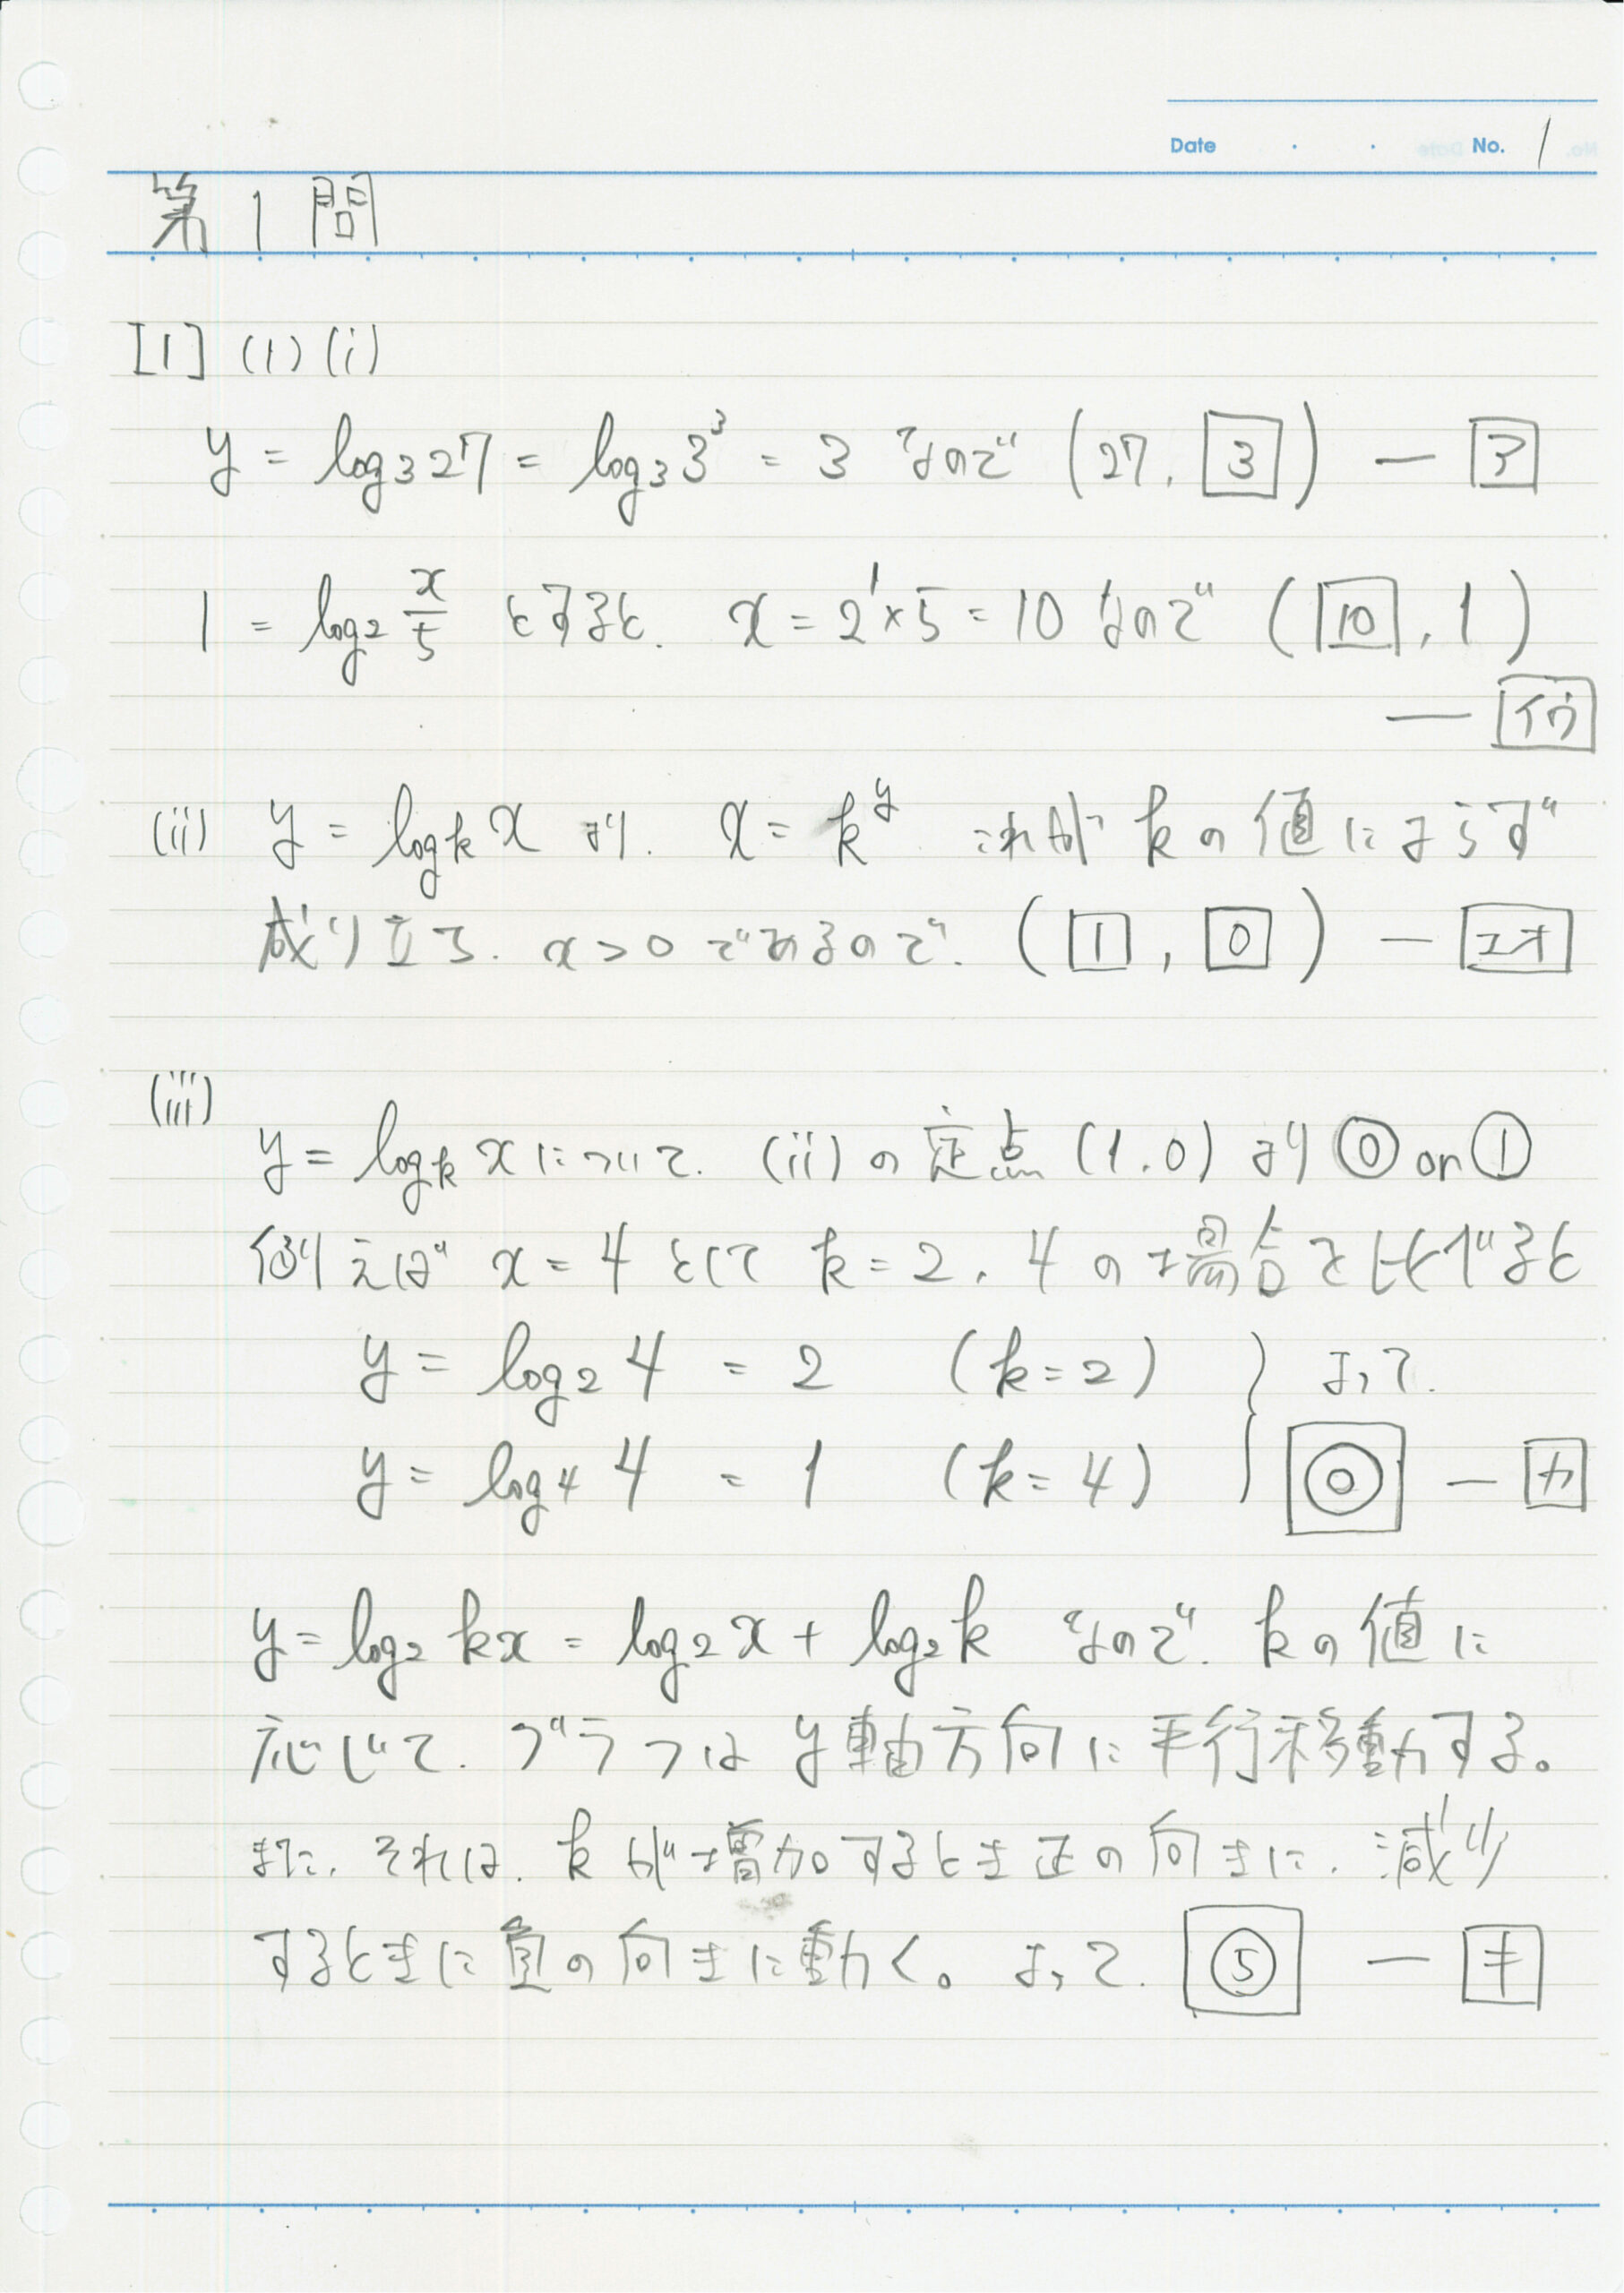 Date ・ ・ No. 1
第1問
[1] (1) (i)
y = log₃27 = log₃3³ = 3 なので (27, 3) — ア
1 = log₂ x/5 とすると. x = 2¹×5 = 10 なので (10, 1)
— イウ
(ii) y = logₖx より. x = k^y これが kの値によらず
成り立ち. x>0 であるので. (1, 0) — エオ
(iii)
y = logₖxについて. (ii)の定点(1.0)より ⓪ or ①
例えば x = 4 として k = 2, 4 の場合を比べると
y = log₂4 = 2 (k=2) } よって.
y = log₄4 = 1 (k=4) ⓪ — カ
y = log₂kx = log₂x + log₂k なので. kの値に
応じて. グラフは y軸方向に平行移動する。
また. それは. kが増加するとき正の向きに. 減少
するときに負の向きに動く。よって. ⑤ — キ